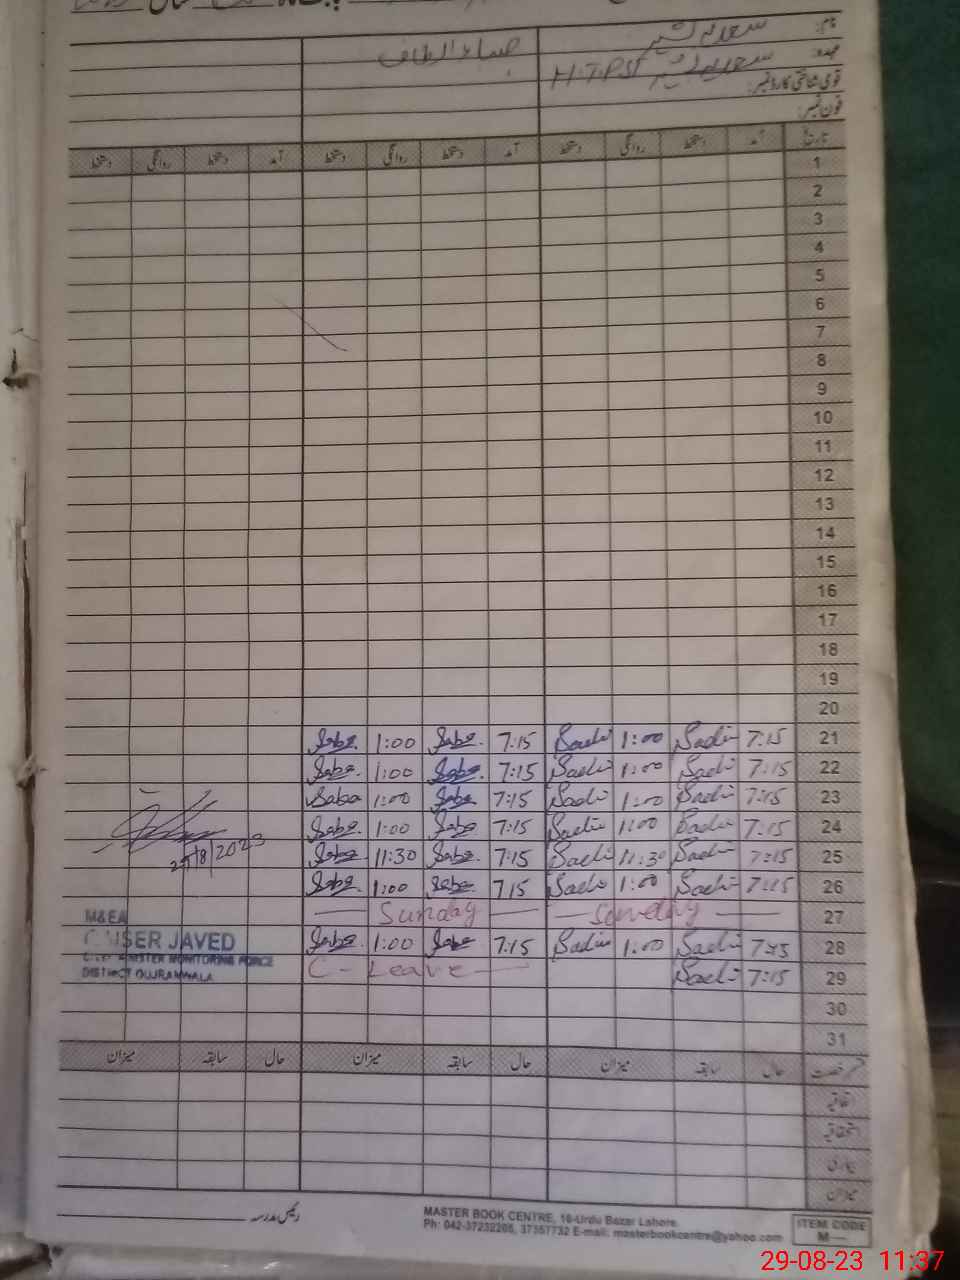 نام: سعدیہ بشیر
عہدہ: H.T.PST
قومی شناختی کارڈ نمبر:
فون نمبر:
تاریخ آمد دستخط روانگی دستخط آمد دستخط روانگی دستخط آمد دستخط روانگی دستخط
1
2
3
4
5
6
7
8
9
10
11
12
13
14
15
16
17
18
19
20
Saba. 1:00 Saba. 7:15 Sadi 1:00 Sadi 7:15 21
Saba. 1:00 Saba. 7:15 Sadi 1:00 Sadi 7:15 22
Saba 1:00 Saba 7:15 Sadi 1:00 Sadi 7:15 23
Saba. 1:00 Saba. 7:15 Sadi 1:00 Sadi 7:15 24
Saba. 11:30 Saba. 7:15 Sadi 11:30 Sadi 7:15 25
Saba. 1:00 Saba. 715 Sadi 1:00 Sadi 7:15 26
Sunday Sunday 27
Saba. 1:00 Saba. 7:15 Sadi 1:00 Sadi 7:15 28
C - Leave Sadi 7:15 29
30
31
8/2023
M&EA
JAVED
MONITORING FORCE
DISTRICT GUJRANWALA
رخصت حال سابقہ میزان حال سابقہ میزان حال سابقہ میزان
اتفاقیہ
استحقاقیہ
بیماری
میزان
رئیس مدرسہ
MASTER BOOK CENTRE, 16-Urdu Bazar Lahore.
Ph: 042-37232205, 37357732 E-mail: masterbookcentre@yahoo.com
ITEM CODE
M—
29-08-23 11:37